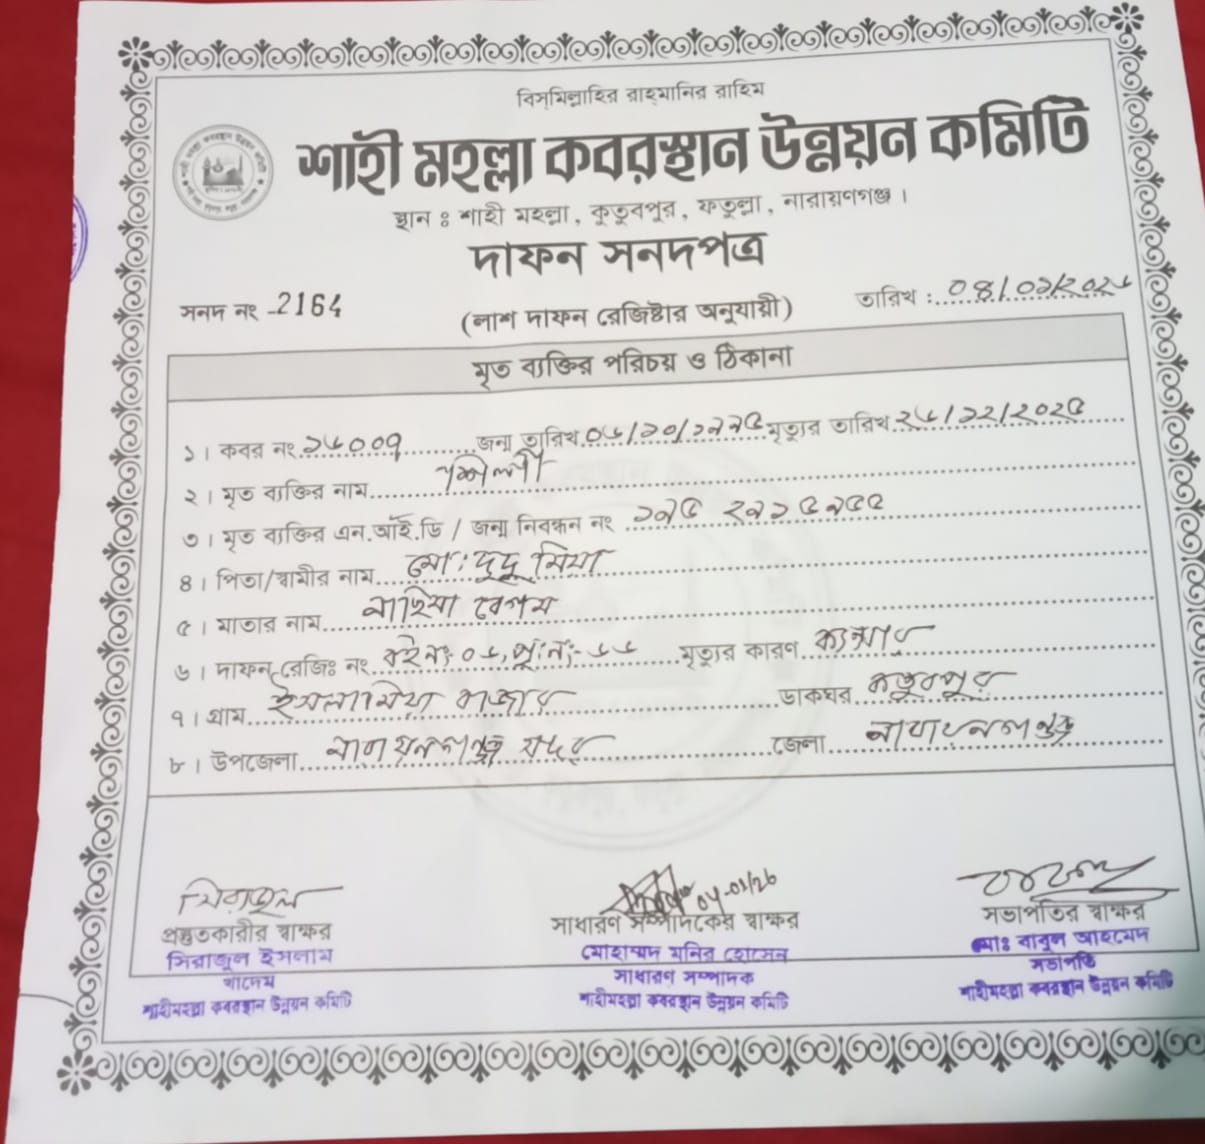 বিস্‌মিল্লাহির রাহ্‌মানির রাহিম
শাহী মহল্লা কবরস্থান উন্নয়ন কমিটি
স্থান ঃ শাহী মহল্লা, কুতুবপুর, ফতুল্লা, নারায়ণগঞ্জ ।
দাফন সনদপত্র
সনদ নং -2164 (লাশ দাফন রেজিষ্টার অনুযায়ী) তারিখ : ০৪/০১/২০২৬
মৃত ব্যক্তির পরিচয় ও ঠিকানা
১। কবর নং ১৬০০৭ জন্ম তারিখ ০৬/১০/১৯৯৫ মৃত্যুর তারিখ ২৬/১২/২০২৫
২। মৃত ব্যক্তির নাম
৩। মৃত ব্যক্তির এন.আই.ডি / জন্ম নিবন্ধন নং ১৯৫ ২৯১৫৯৫৫
৪। পিতা/স্বামীর নাম মো: দুদু মিয়া
৫। মাতার নাম নাছিমা বেগম
৬। দাফন রেজিঃ নং বই নং: ০৬, পৃ: নং:- ৬৬ মৃত্যুর কারণ ক্যান্সার
৭। গ্রাম ইসলামিয়া বাজার ডাকঘর কুতুবপুর
৮। উপজেলা নারায়নগঞ্জ সদর জেলা নারায়নগঞ্জ
সিরাজুল 04-01/26
প্রস্তুতকারীর স্বাক্ষর সাধারণ সম্পাদকের স্বাক্ষর সভাপতির স্বাক্ষর
সিরাজুল ইসলাম মোহাম্মদ মনির হোসেন মোঃ বাবুল আহমেদ
খাদেম সাধারণ সম্পাদক সভাপতি
শাহীমহল্লা কবরস্থান উন্নয়ন কমিটি শাহীমহল্লা কবরস্থান উন্নয়ন কমিটি শাহীমহল্লা কবরস্থান উন্নয়ন কমিটি